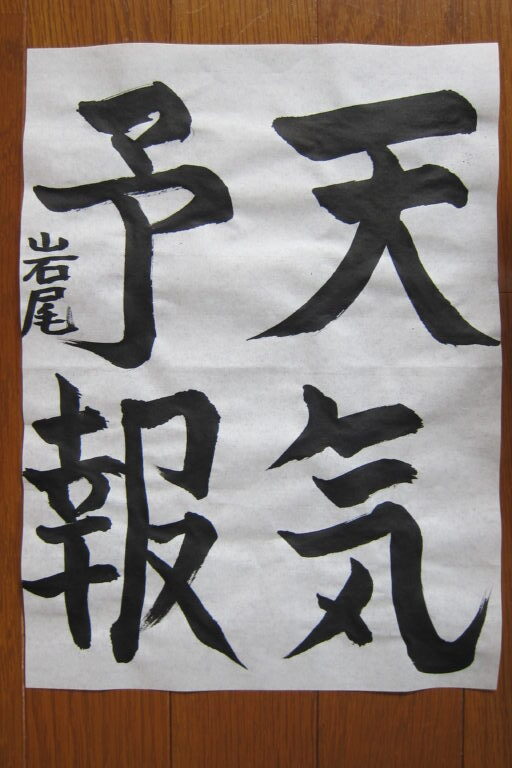 天気
予報
岩尾